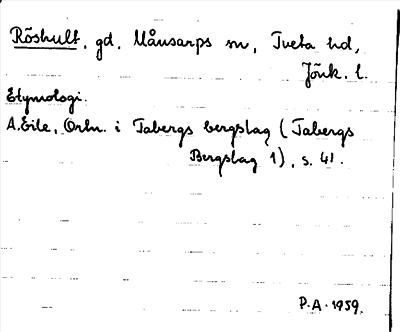 Röshult, gd, Månsarps sn, Tveta hd,
Jönk. l.
Etymologi.
A. Eile, Ortn. i Tabergs bergslag (Tabergs
Bergslag 1), s. 41.
P.A. 1959.